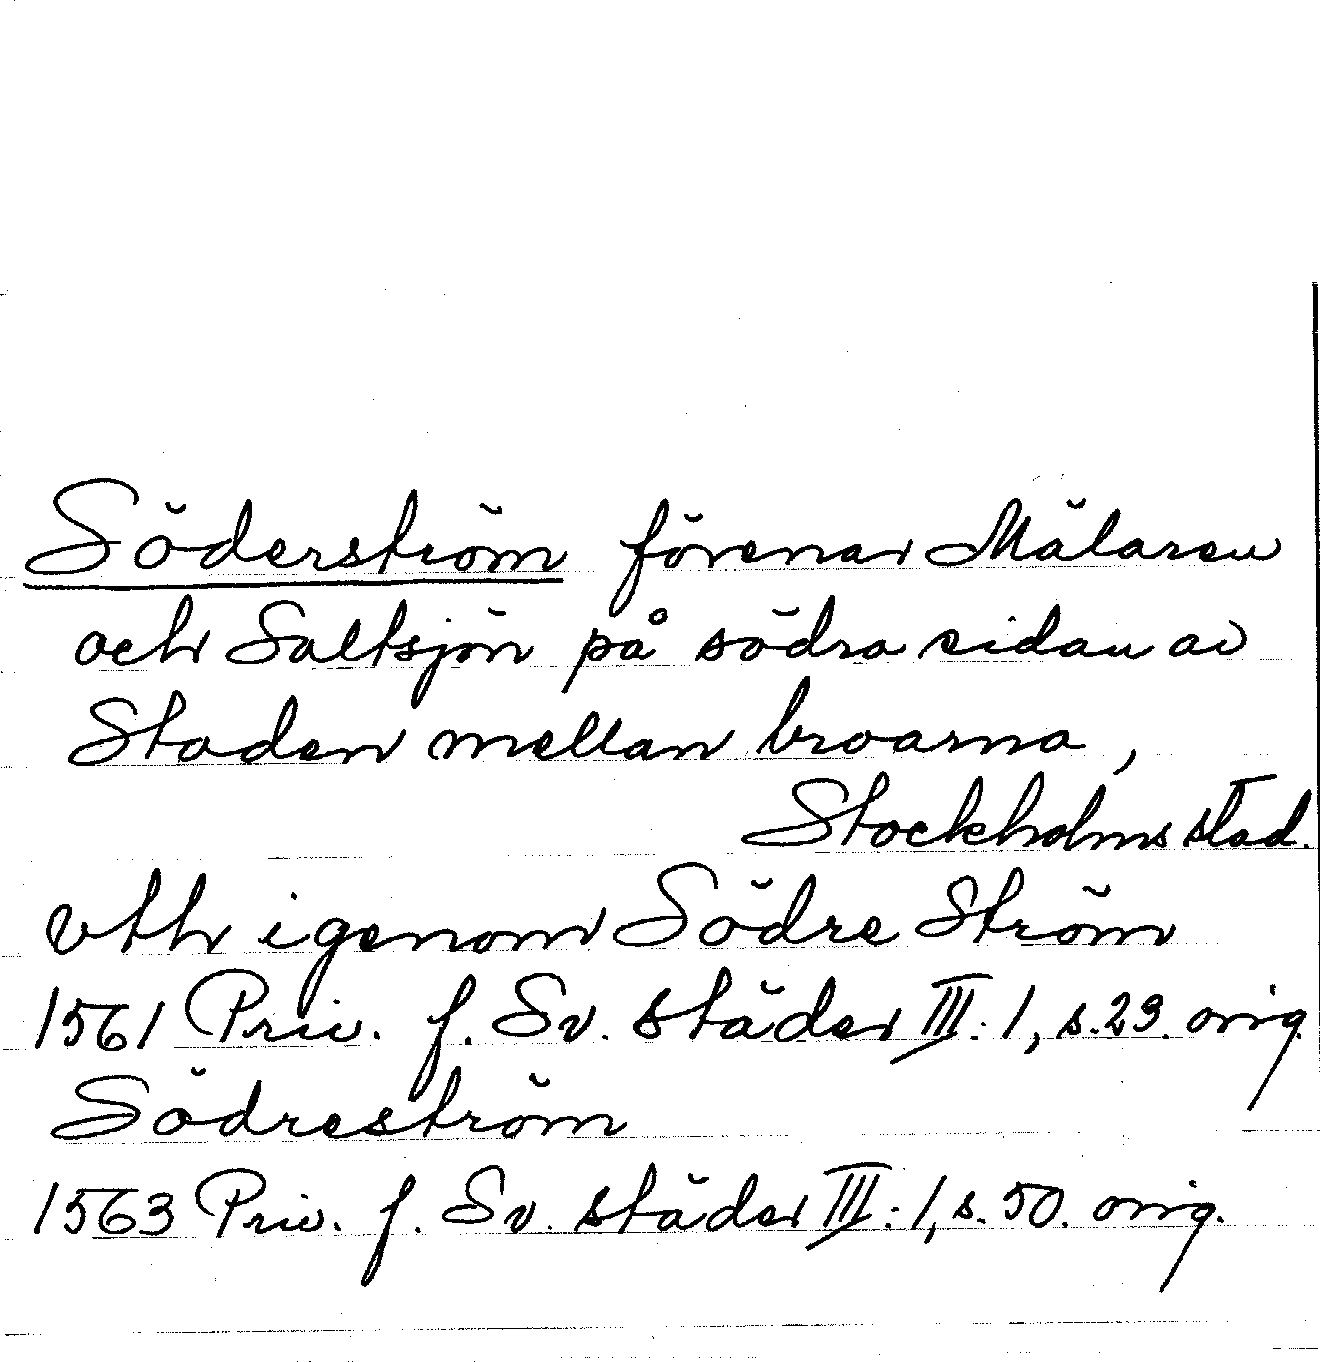 Söderström förenar Mälaren
och Saltsjön på södra sidan av
Staden mellan broarna,
Stockholms stad.
vth igenom Södre Ström
1561 Priv. f. Sv. städer III:1, s. 23. orig.
Södreström
1563 Priv. f. Sv. städer III:1, s. 50. orig.